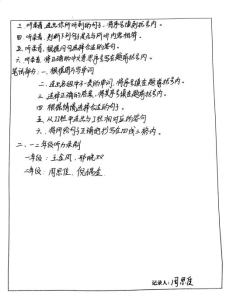 三. 听录音, 选出你所听到的句子, 将序号填到括号内。
四. 听录音, 判断下列句子是否与所听内容相符。
五. 听录音, 根据问句选择合适的答句。
六. 听录音, 将正确的中文意思序号写在题前括号内。
笔试部分: 一. 根据图片写单词
二. 选出不同类的单词, 将序号填在题前括号内。
三. 选择正确的答案, 将其序号填在题前括号内。
四. 根据情境选择合适的句子。
五. 从II栏中选出与I栏相对应的答句
六. 将所给句子正确的抄写在四线三格内。
二. 一二年级听力录制
一年级: 王
二年级: 周思佳、倪
记录人: 周思佳